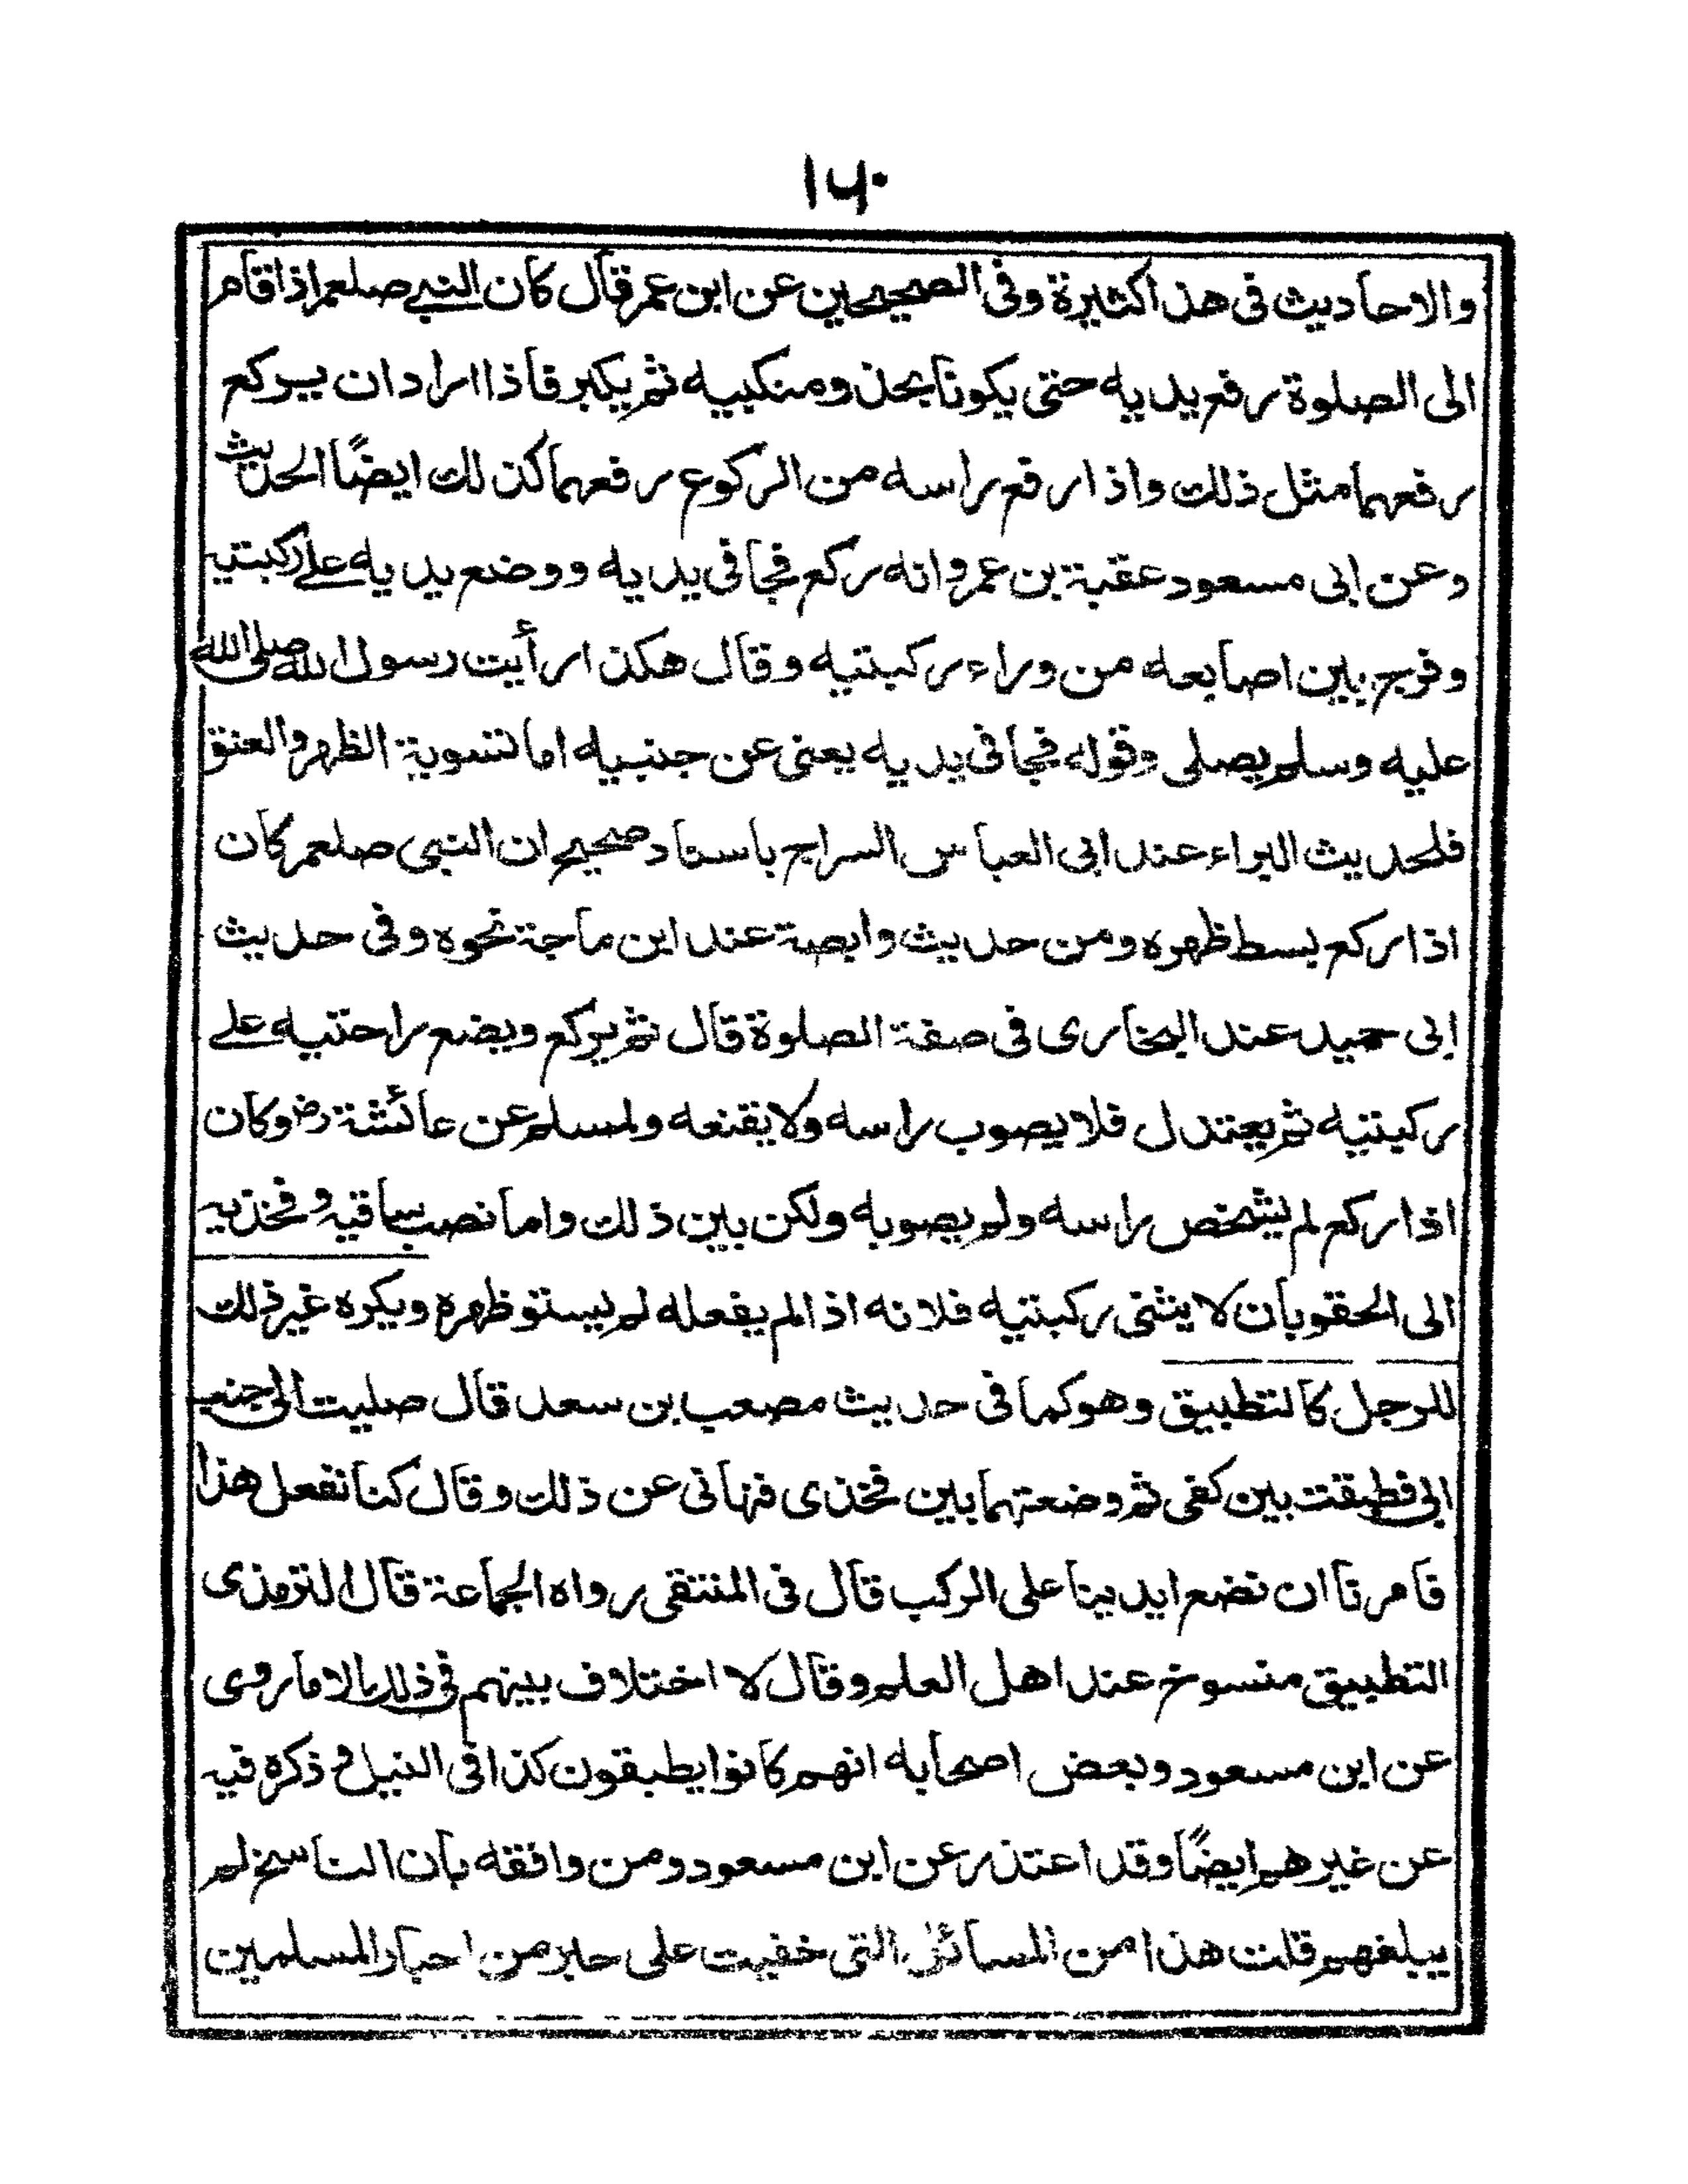 ١٦٠
والاحاديث فى هذا كثيرة وفى الصحيحين عن ابن عمر قال كان النبي صلعم اذا قام
الى الصلوة رفع يديه حتى يكونا بحذ ومنكبيه ثم يكبر فاذا اراد ان يركع
رفعهما مثل ذلك واذا رفع راسه من الركوع رفعهما كذلك ايضًا الحديث
وعن ابى مسعود عقبة بن عمرو انه ركع فجافى يديه ووضع يديه على ركبتيه
وفرج بين اصابعه من وراء ركبتيه وقال هكذا رأيت رسول الله صلى الله
عليه وسلم يصلى وقوله فجافى يديه يعنى عن جنبيه اما تسوية الظهر والعنق
فلحديث البراء عند ابى العباس السراج باسناد صحيح ان النبى صلعم كان
اذا ركع بسط ظهره ومن حديث وابصة عند ابن ماجة نحوه وفى حديث
ابى حميد عند البخارى فى صفة الصلوة قال ثم يركع ويضع راحتيه على
ركبتيه ثم يعتدل فلا يصوب راسه ولا يقنعه ولمسلم عن عائشة رض وكان
اذا ركع لم يشخص راسه ولم يصوبه ولكن بين ذلك واما نصب ساقيه وفخذيه
الى الحقو بان لا يثنى ركبتيه فلانه اذا لم يفعله لم يستو ظهره ويكره غير ذلك
للرجل كالتطبيق وهو كما فى حديث مصعب بن سعد قال صليت الى جنب
ابى فطبقت بين كفى ثم وضعتهما بين فخذى فنهانى عن ذلك وقال كنا نفعل هذا
فامرنا ان نضع ايدينا على الركب قال فى المنتقى رواه الجماعة قال الترمذى
التطبيق منسوخ عند اهل العلم وقال لا اختلاف بينهم فى ذلك الا ما روى
عن ابن مسعود وبعض اصحابه انهم كانوا يطبقون كذا فى النيل و ذكره فيه
عن غيرهم ايضًا وقد اعتذر عن ابن مسعود ومن وافقه بان الناسخ لم
يبلغهم قلت هذا من المسائل التى خفيت على حبر من احبار المسلمين